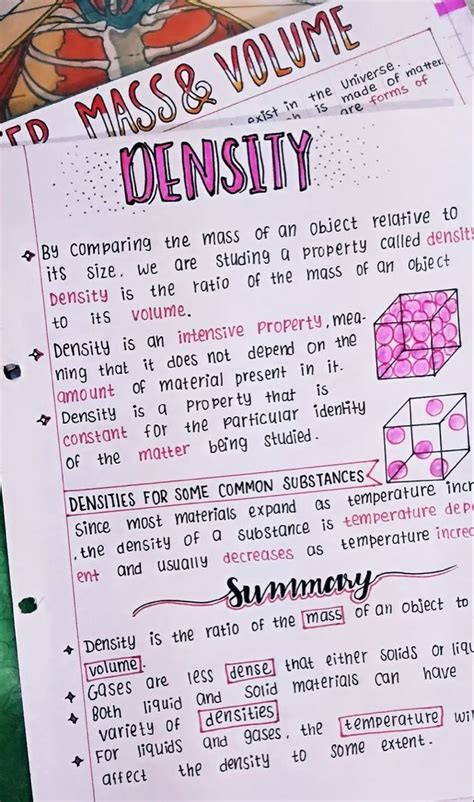 MASS & VOLUME
exist in the Universe.
is made of matter.
are forms of
DENSITY
By comparing the mass of an object relative to
its size, we are studing a property called
Density is the ratio of the mass of an object
to its volume.
Density is an intensive property, mea-
ning that it does not depend on the
amount of material present in it.
Density is a property that is
constant for the particular identity
of the matter being studied.
DENSITIES FOR SOME COMMON SUBSTANCES
Since most materials expand as temperature
the density of a substance is temperature
ent and usually decreases as temperature
Summary
Density is the ratio of the mass of an object to
volume.
Gases are less dense that either solids or
Both liquid and solid materials can have
variety of densities
For liquids and gases, the temperature
affect the density to some extent.